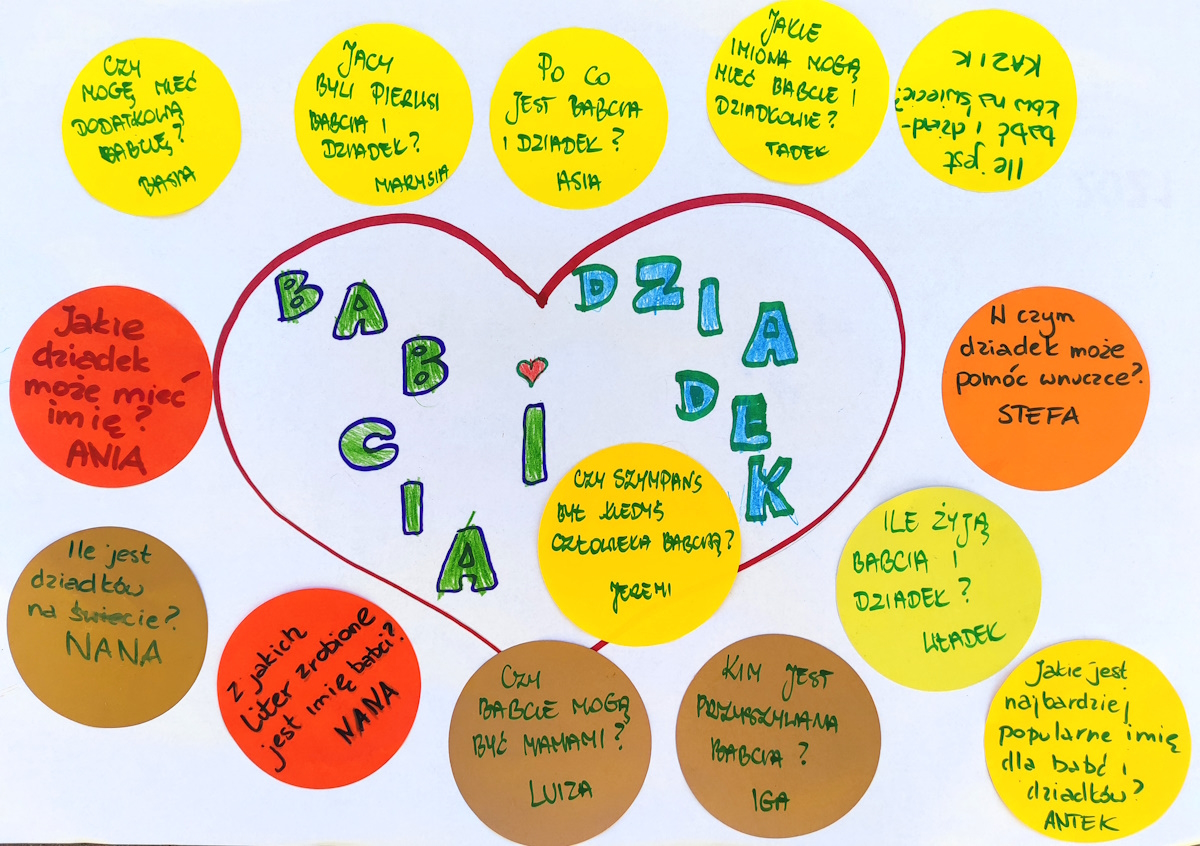 CZY
MOGĘ MIEĆ
DODATKOWĄ
BABCIĘ?
BASIA
JACY
BYLI PIERWSI
BABCIA I
DZIADEK?
MARYSIA
PO CO
JEST BABCIA
I DZIADEK?
ASIA
JAKIE
IMIONA MOGĄ
MIEĆ BABCIE I
DZIADKOWIE?
TADEK
Ile jest
babć i dziad-
ków na świecie?
KAZIK
BABCIA
I
DZIADEK
Jakie
dziadek
może mieć
imię?
ANIA
W czym
dziadek może
pomóc wnuczce?
STEFA
CZY SZYMPANS
BYŁ KIEDYŚ
CZŁOWIEKA BABCIĄ?
JEREMI
ILE ŻYJĄ
BABCIA I
DZIADEK?
WŁADEK
Ile jest
dziadków
na świecie?
NANA
Z jakich
liter zrobione
jest imię babci?
NANA
CZY
BABCIE MOGĄ
BYĆ MAMAMI?
LUIZA
KIM JEST
PRZYSZYWANA
BABCIA?
IGA
Jakie jest
najbardziej
popularne imię
dla babć i
dziadków?
ANTEK